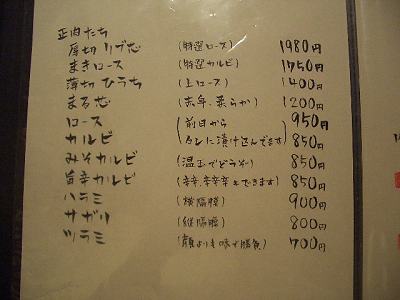 正肉たち
厚切リブ芯 (特選ロース) 1980円
まきロース (特選カルビ) 1750円
薄切ひうち (上ロース) 1400円
まる芯 (赤身、柔らか) 1200円
ロース (前日から 950円
カルビ タレに漬け込んでます) 850円
みそカルビ (温玉でどうぞ) 850円
旨辛カルビ (辛辛、辛辛辛もできます) 850円
ハラミ (横隔膜) 900円
サガリ (縦隔膜) 800円
ツラミ (顔よりも味で勝負) 700円